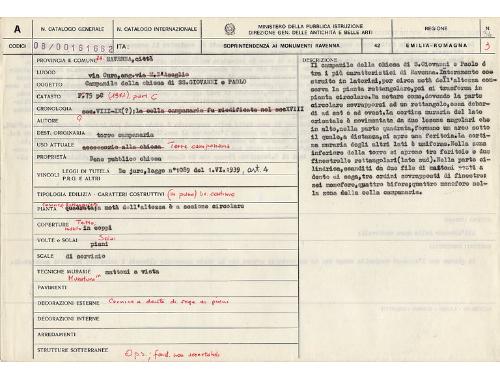 A
N. CATALOGO GENERALE
N. CATALOGO INTERNAZIONALE
MINISTERO DELLA PUBBLICA ISTRUZIONE
DIREZIONE GEN. DELLE ANTICHITÀ E BELLE ARTI
REGIONE
N.
CODICI
08/00161662
ITA:
SOPRINTENDENZA AI MONUMENTI RAVENNA
42
EMILIA-ROMAGNA
3
PROVINCIA E COMUNE: RAVENNA, città
LUOGO
via Cura, ang. via M. D'Azeglio
OGGETTO
Campanile della chiesa di SS. GIOVANNI e PAOLO
CATASTO
F. 75
CRONOLOGIA
sec. VIII-IX(?); la cella campanaria fu riedificata nel sec XVIII
AUTORE
DEST. ORIGINARIA
torre campanaria
USO ATTUALE
accessorio alla chiesa. Torre campanaria
PROPRIETÀ
Bene pubblico chiesa
VINCOLI
LEGGI DI TUTELA
De jure, legge n° 1089 del 1.VI.1939, art. 4
P.R.G. E ALTRI
TIPOLOGIA EDILIZIA - CARATTERI COSTRUTTIVI
PIANTA
quadrata a metà dell'altezza è a sezione circolare
COPERTURE
Tetto
in coppi
VOLTE o SOLAI
Solai
piani
SCALE
di servizio
TECNICHE MURARIE
mattoni a vista
Muratura in
PAVIMENTI
DECORAZIONI ESTERNE
Cornice a denti di sega ai piani
DECORAZIONI INTERNE
ARREDAMENTI
STRUTTURE SOTTERRANEE
fond. non accertabili
DESCRIZIONE
Il campanile della chiesa di S. Giovanni e Paolo è
tra i più caratteristici di Ravenna. Interamente cos
truito in laterizi, per circa metà dell'altezza conser
va la pianta rettangolare, poi si trasforma in
pianta circolare. Da notare come, dovendo la parte
circolare sovrapporsi ad un rettangolo, essa debor
di ad est e ad ovest. La cortina muraria del lato
orientale è costituita da due lesene angolari che
in alto, nella parte quadrata, formano un arco sotto
il quale, a distanza, si apre una feritoia. La cor
tina muraria degli altri lati è uniforme. Nella zona
inferiore della torre si aprono tre feritoie e due
finestrelle rettangolari (lato sud). Nella parte ci
lindrica, scanditi da due file di mattoni posti a
dente di sega, tre ordini sovrapposti di finestre:
sei monofore, quattro bifore, quattro monofore nel
la zona della cella campanaria.